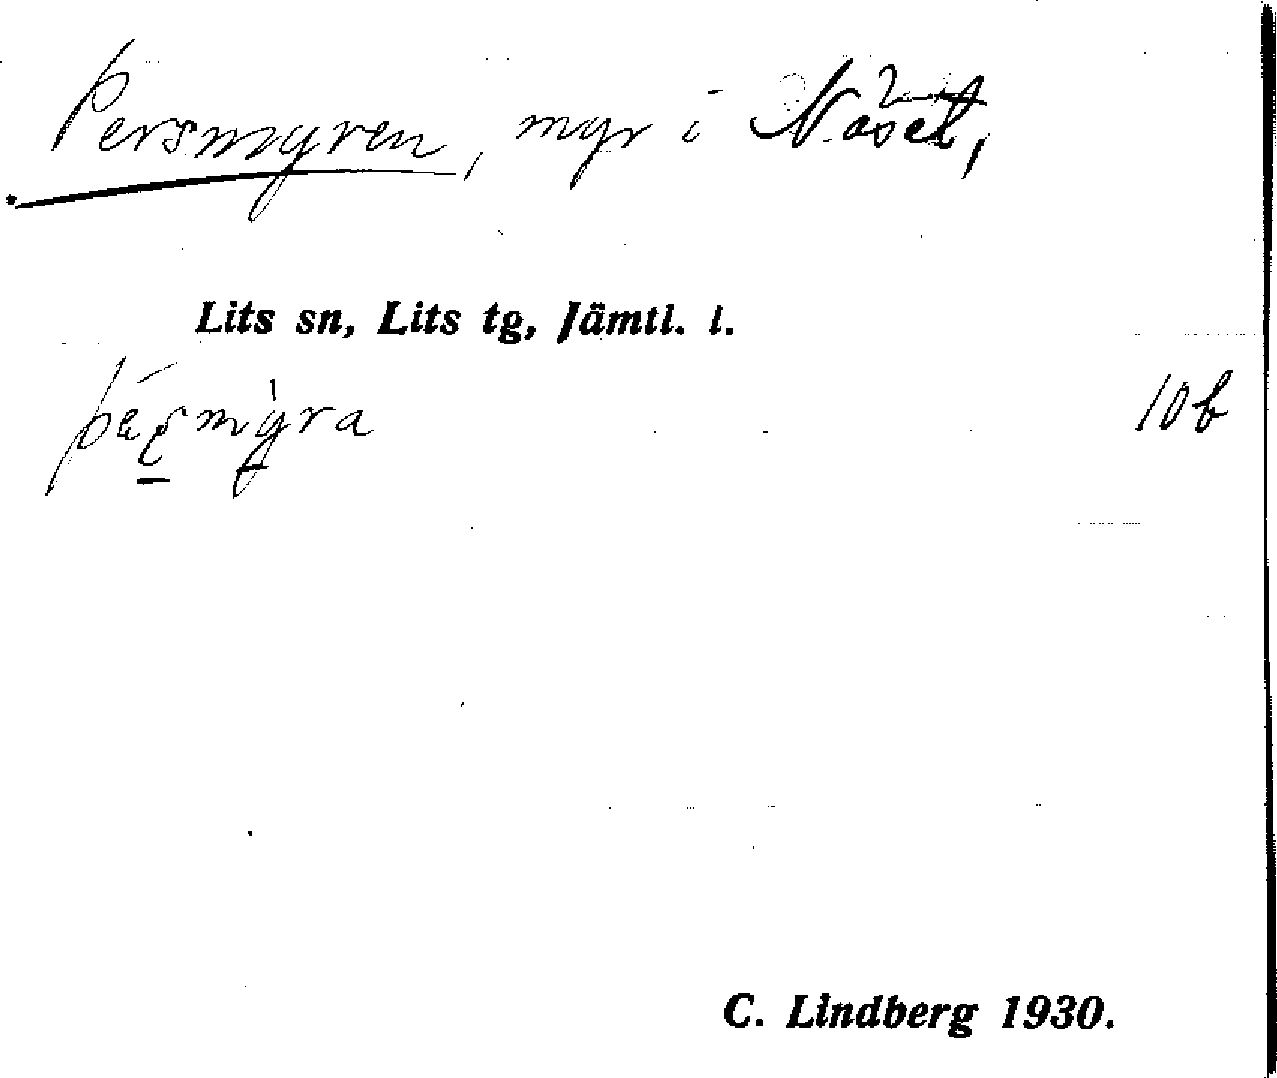 Persmyren, myr i Näset,
Lits sn, Lits tg, Jämtl. l.
10b
C. Lindberg 1930.